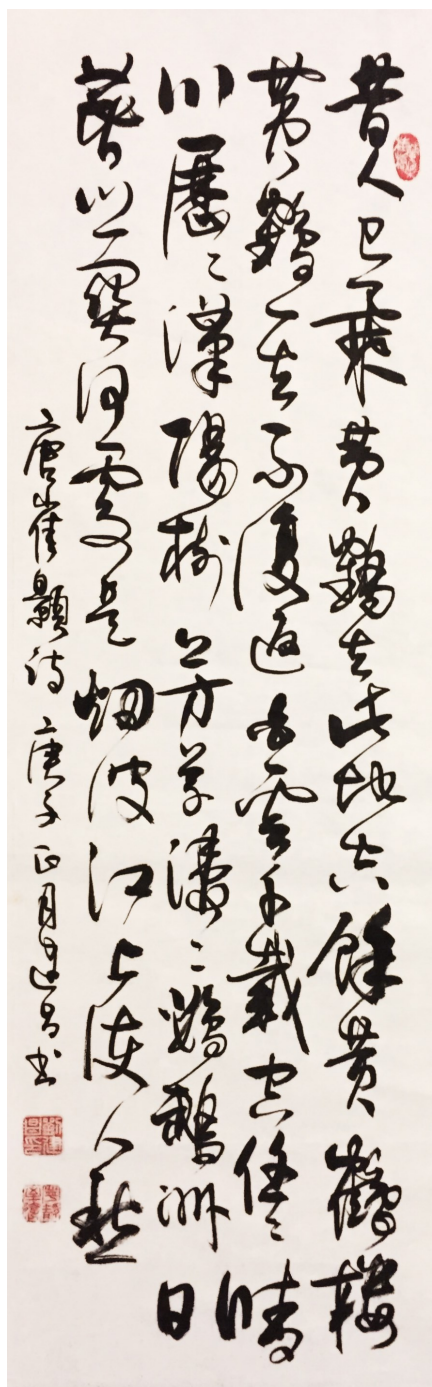 昔人已乘黃鶴去此地空餘黃鶴樓
黃鶴一去不復返白雲千載空悠〻晴
川歷〻漢陽樹芳草淒〻鸚鵡洲日
暮鄉關何處是烟波江上使人愁
唐崔顥詩 庚子正月建昌書